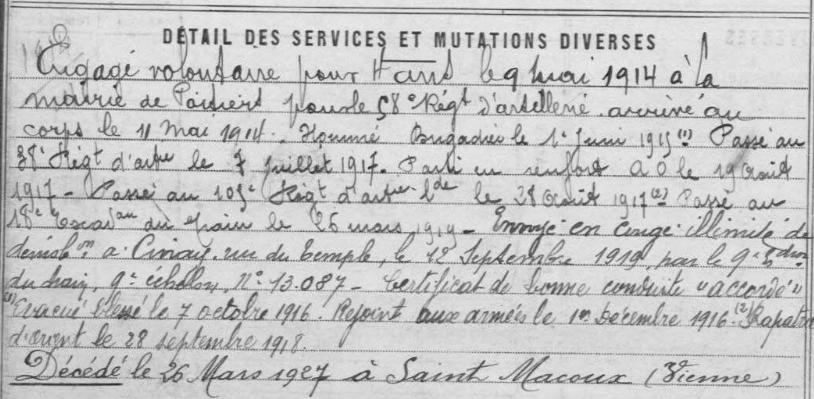 DÉTAIL DES SERVICES ET MUTATIONS DIVERSES
Engagé volontaire pour 4 ans le 9 mai 1914 à la
mairie de Poitiers pour le 58e Régt d'artillerie. arrivé au
corps le 11 Mai 1914. Nommé Brigadier le 1er Juin 1915 (1) Passé au
38e Régt d'artie le 7 juillet 1917. Parti en renfort A O le 19 Août
1917 - Passé au 105e Régt d'artie lde le 28 Août 1917 (2) Passé au
18e Escad on du train le 26 mars 1919 - Envoyé en congé illimité de
démob on à Civray, rue du Temple, le 12 Septembre 1919, par le 9e Edron
du train, 9e échelon, No 13.087 - Certificat de bonne conduite "accordé"
(1) Evacué blessé le 7 octobre 1916. Rejoint aux armées le 1er Décembre 1916. (2) Rapatrié
d'orient le 28 septembre 1918.
Décédé le 26 Mars 1927 à Saint Macoux (Vienne)